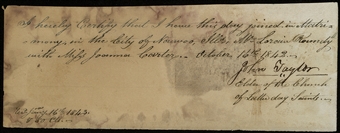 I hereby Certify that I have this day joined in Matri-
mony, in the City of Nauvoo, Ills. Mr. Lorain Roundy
with Miss Joanna Carter — October 16th 1842 —
John Taylor
Elder of the Church
of Latter day Saints —
16th 1843